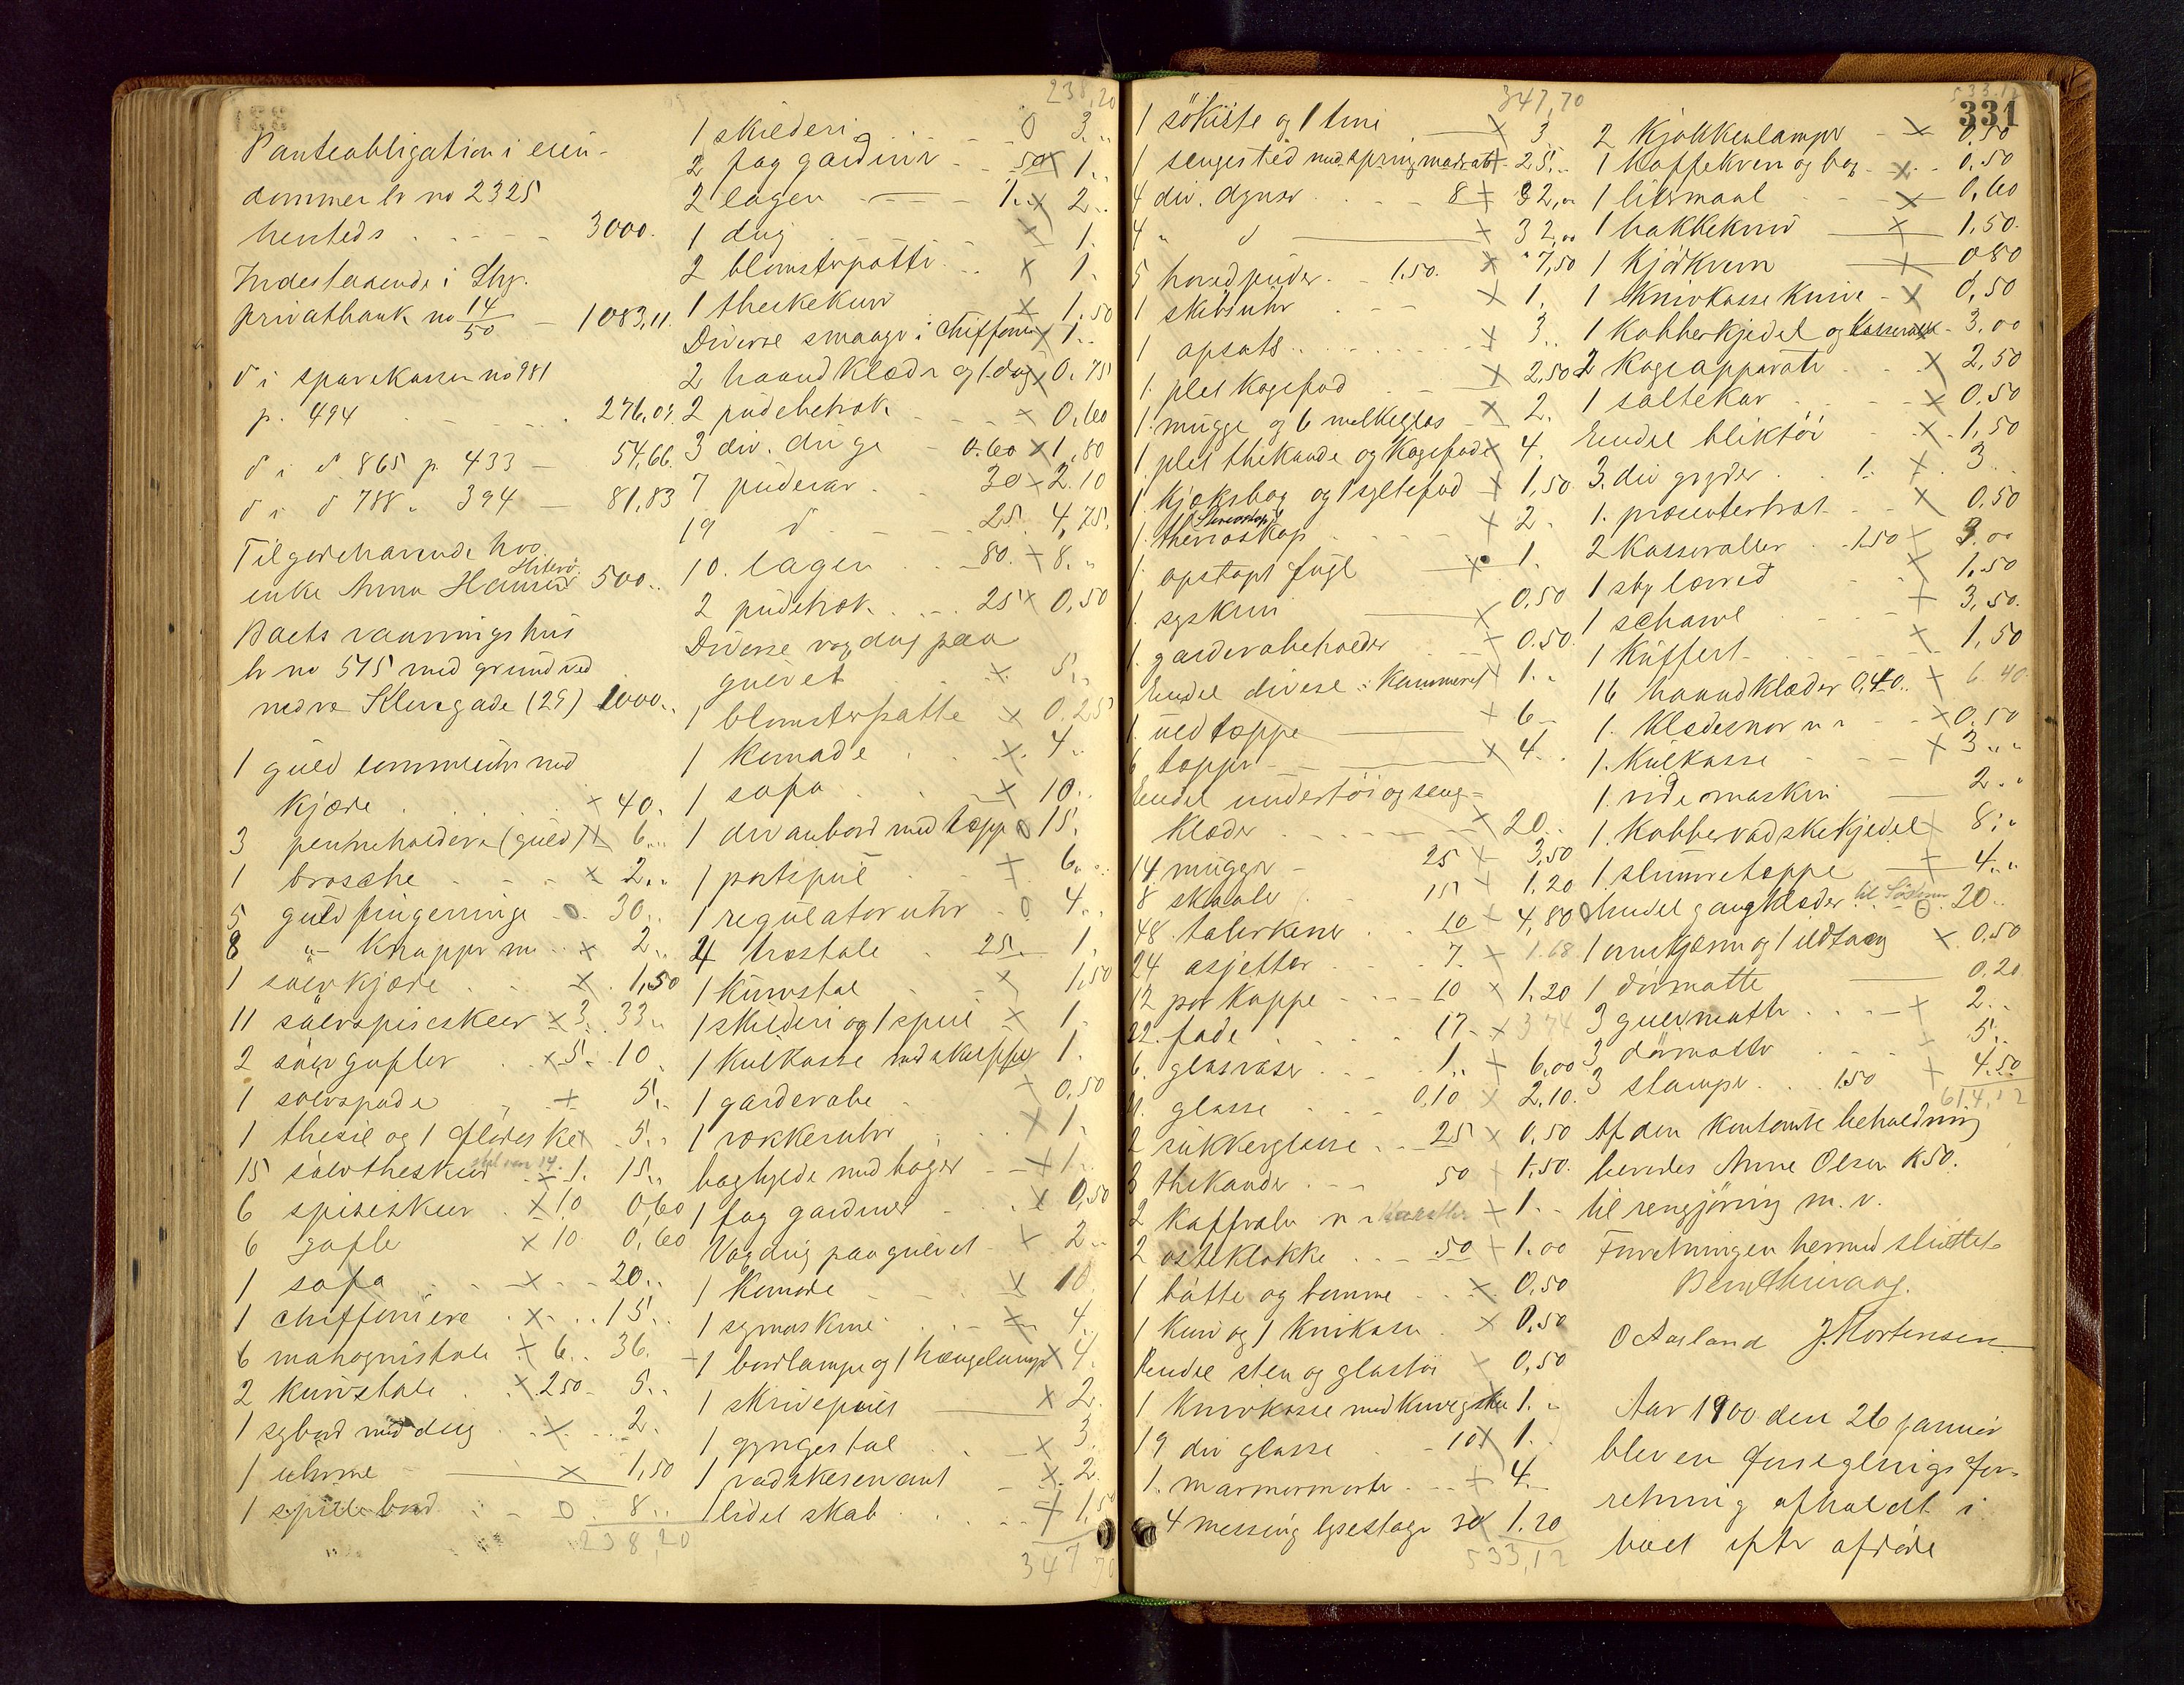 Panteobligation i eien-
dommen br no 2325
hersteds 3000.
Indestaaende i Stvg.
privatbank no 14/50 — 1083,11.
d i sparekassen no 981
p. 494 276,09.
d i d 865 p. 433 — 54,66.
d i d 788 " 394 — 81,83
Tilgodehavende hos
enke Anna Hansen 500..
Boets vaaningshus
br no 575 med grund ved
nedre Klevegade (29) 1000..
1 guld lommeuhr med
kjæde x 40.
3 penneholdere (guld) x 6..
1 brosche x 2..
5 guld fingerringe 0 30..
8 " knapper m. x 2..
1 sølvkjæde x 1,50
11 sølvspiseskeer x 3. 33..
2 sølvgafler x 5. 10.
1 sølvspade + 5..
1 thesil og 1 flødeske x 5..
15 sølvtheskeer x 1. 15..
6 spiseskeer x 10 0,60
6 gafler x 10 0,60
1 sofa x 20..
1 chiffoniere x 15..
6 mahognistole x 6.. 36.
2 kurvstole x 250 5..
1 sybord med dug x 2.
1 uhrne x 1,50
1 spillebord 0 8..
238,20
238,20
1 skilderi 0 3..
2 fag gardiner 50 x 1..
2 lagen 1. x 2..
1 dug x 1.
2 blomsterpotter x 1.
1 thekekurv x 1.50
Diverse smaager i chiffonier x 1..
2 haandklæder og 1 dug x 0.75
2 pudebetræk x 0,60
3 div. duge 0.60 x 1,80
7 pudevar 30 x 2.10
19 d 25. 4,75.
10. lagen 80. + 8..
2 pudetræk 25 x 0,50
Diverse voxdug paa
gulvet x 5..
1 blomsterpotte x 0.25
1 komode x 4..
1 sofa x 10.
1 divanbord med tæppe 0 15.
1 portspeil + 6..
1 regulatoruhr 0. 4..
4 træstole 25. 1.
1 kurvstol x 1,50
1 skilderi og 1 speil x 1.
1 kulkasse med skuffer 1.
1 garderobe + 0,50
1 vækkeruhr x 1.
boghylde med bøger x 1..
1 fag gardiner x 0,50
Voxdug paa gulvet x 2..
1 komode x 10
1 symaskine x 4.
1 bordlampe og 1 hængelampe x 4.
1 skrivepult x 2.
1 gyngestol x 3.
1 vadskeservant x 2.
1 lidet skab + 1.50
347 70
347,70
1 søkiste og 1 tine x 3.
1 sengested med springmadrats + 25..
4 div. dyner 8 + 32,"
4 " d + 32,00
5 hovedpuder 1.50. x 7,50
1 skibsuhr x 1.
1 opsats x 3..
1. plet kagefad x 2,50
1. mugge og 6 melkeglas x 2.
1 plet thekande og kagefad x 4.
1. kjæksbog og 1 syltefad + 1,50
1. Stereoskop x 2.
1. opstopt fugl x 1.
1. syskrin x 0,50
1. garderobeholder + 0.50.
Endel diverse i kammeret x 1..
1. uldtæppe + 6..
6 tæpper x 4..
Endel undertøi og seng-
klæder x 20..
14 mugger 25 x 3,50
8 skaale 15 x 1.20
48 talerkener 10 x 4,80
24 asjetter 7. x 1.68
12 par kopper 10 x 1.20
22. fade 17. x 3 74
6. glasvaser 1.. + 6,00
21. glasse 0,10 x 2,10.
2 sukkerglasse 25 x 0,50
3 thekander 50 x 1.50.
2 + 1..
2 osteklokke 50 + 1.00
1 bøtte og bomme x 0,50
1 kurv og 1 knivkasse x 0,50
Endel sten og glastøi x 0,50
1 knivkasse med knive og skeer 1.."
19 div glasse 10 x 1.
1. marmormorter + 4..
4 messing lysestager 30 x 1.20
533,12
533.12
331
2 kjøkkenlamper x 0,50
1 kaffekvern og bog x 0.50
1 litermaal x 0,60
1 hakkekniv x 1,50.
1 kjødkvern + 080
1 knivkasse knive x 0,50
1 kobberkjedel og kasserolle 3.00
2 kogeapparater x 2,50
1 saltekar x 0.50
Endel bliktøi x 1,50
3. div gryder 1. x 3..
1. præsenterbræt x 0,50
2 kasseroller 1.50 x 3.00
1 stk lærred x 1.50
1 schawl + 3,50.
1 kuffert + 1,50
16 haandklæder 0,40.. + 6 40
1. klædesnor x 0.50
1. kulkasse x 3.."
1. vridemaskin 2.."
1. kobbervadskekjedel x 8.."
1. slumretæppe + 4.."
Endel gangklæder 20..
1 ovnskjærm og 1 ildtang x 0.50
1 dørmatte 0,20
3 gulvmatter x 2..
3 dørmatter x 5..
3 stamper 1.50 + 4.50
614,12
Af den kontante beholdning
leveredes Anne Olsen K 50.
til rengjøring m. v.
Forretningen hermed sluttet
Berg Thuraag.
O Aasland J. Mortensen
Aar 1900 den 26 januar
blev en forseglingsfor-
retning afholdt i
boet efter afdøde